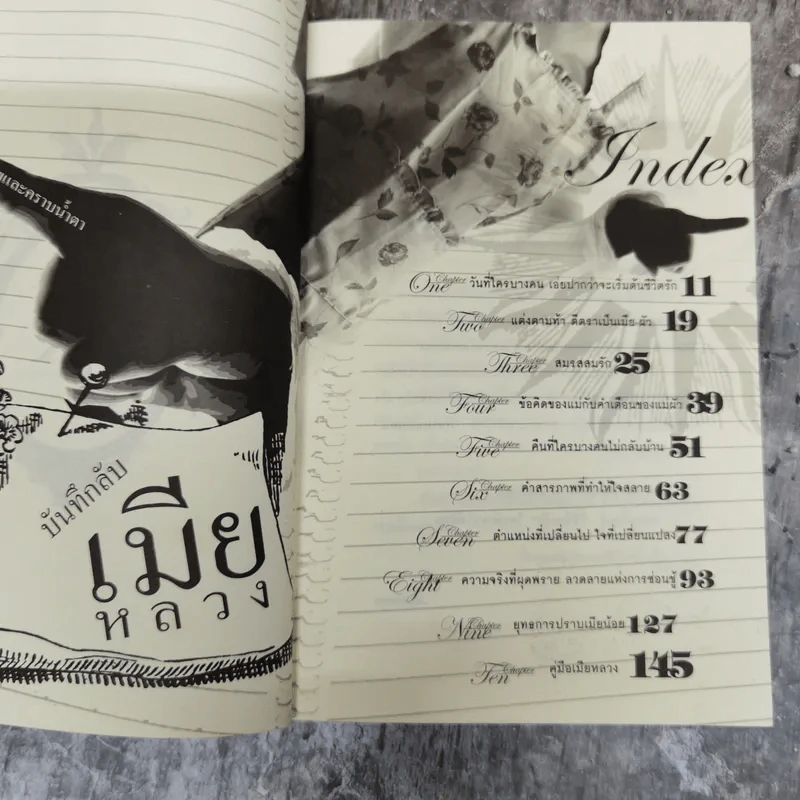 และคราบน้ำตา
บันทึกลับ
เมีย
หลวง
Index
Chapter One วันที่ใครบางคน เอ่ยปากว่าจะเริ่มต้นชีวิตรัก 11
Chapter Two แต่งตามท้า ตีตราเป็นเมีย-ผัว 19
Chapter Three สมรสสมรัก 25
Chapter Four ข้อคิดของแม่กับคำเตือนของแม่ผัว 39
Chapter Five คืนที่ใครบางคนไม่กลับบ้าน 51
Chapter Six คำสารภาพที่ทำให้ใจสลาย 63
Chapter Seven ตำแหน่งที่เปลี่ยนไป ใจที่เปลี่ยนแปลง 77
Chapter Eight ความจริงที่ผุดพราย ลวดลายแห่งการซ่อนชู้ 93
Chapter Nine ยุทธการปราบเมียน้อย 127
Chapter Ten คู่มือเมียหลวง 145